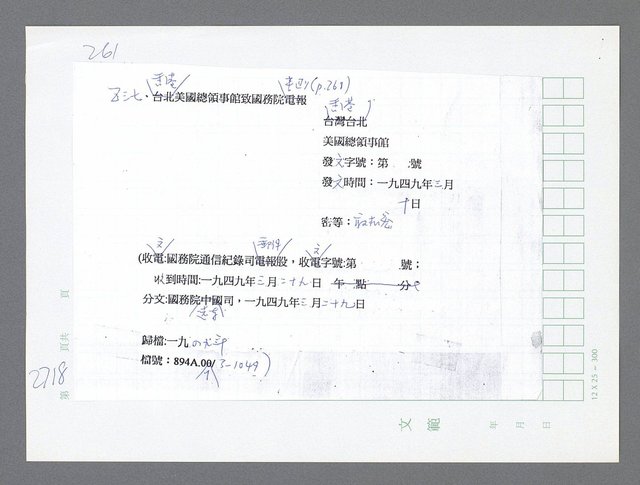 261
香港
五三七、台北美國總領事館致國務院電報
(p.261)
香港
台灣台北
美國總領事館
發文字號：第 號
發文時間：一九四九年三月
十日
密等：
文 郵件 文
(收電:國務院通信紀錄司電報股，收電字號:第 號；
收到時間:一九四九年三月二十九日 午 點 分
分文:國務院中國司，一九四九年三月二十九日
歸檔:一九四九年
檔號：894A.00/3-1049)
2718
第 頁共 頁
12 X 25 - 300
文 範 年 月 日